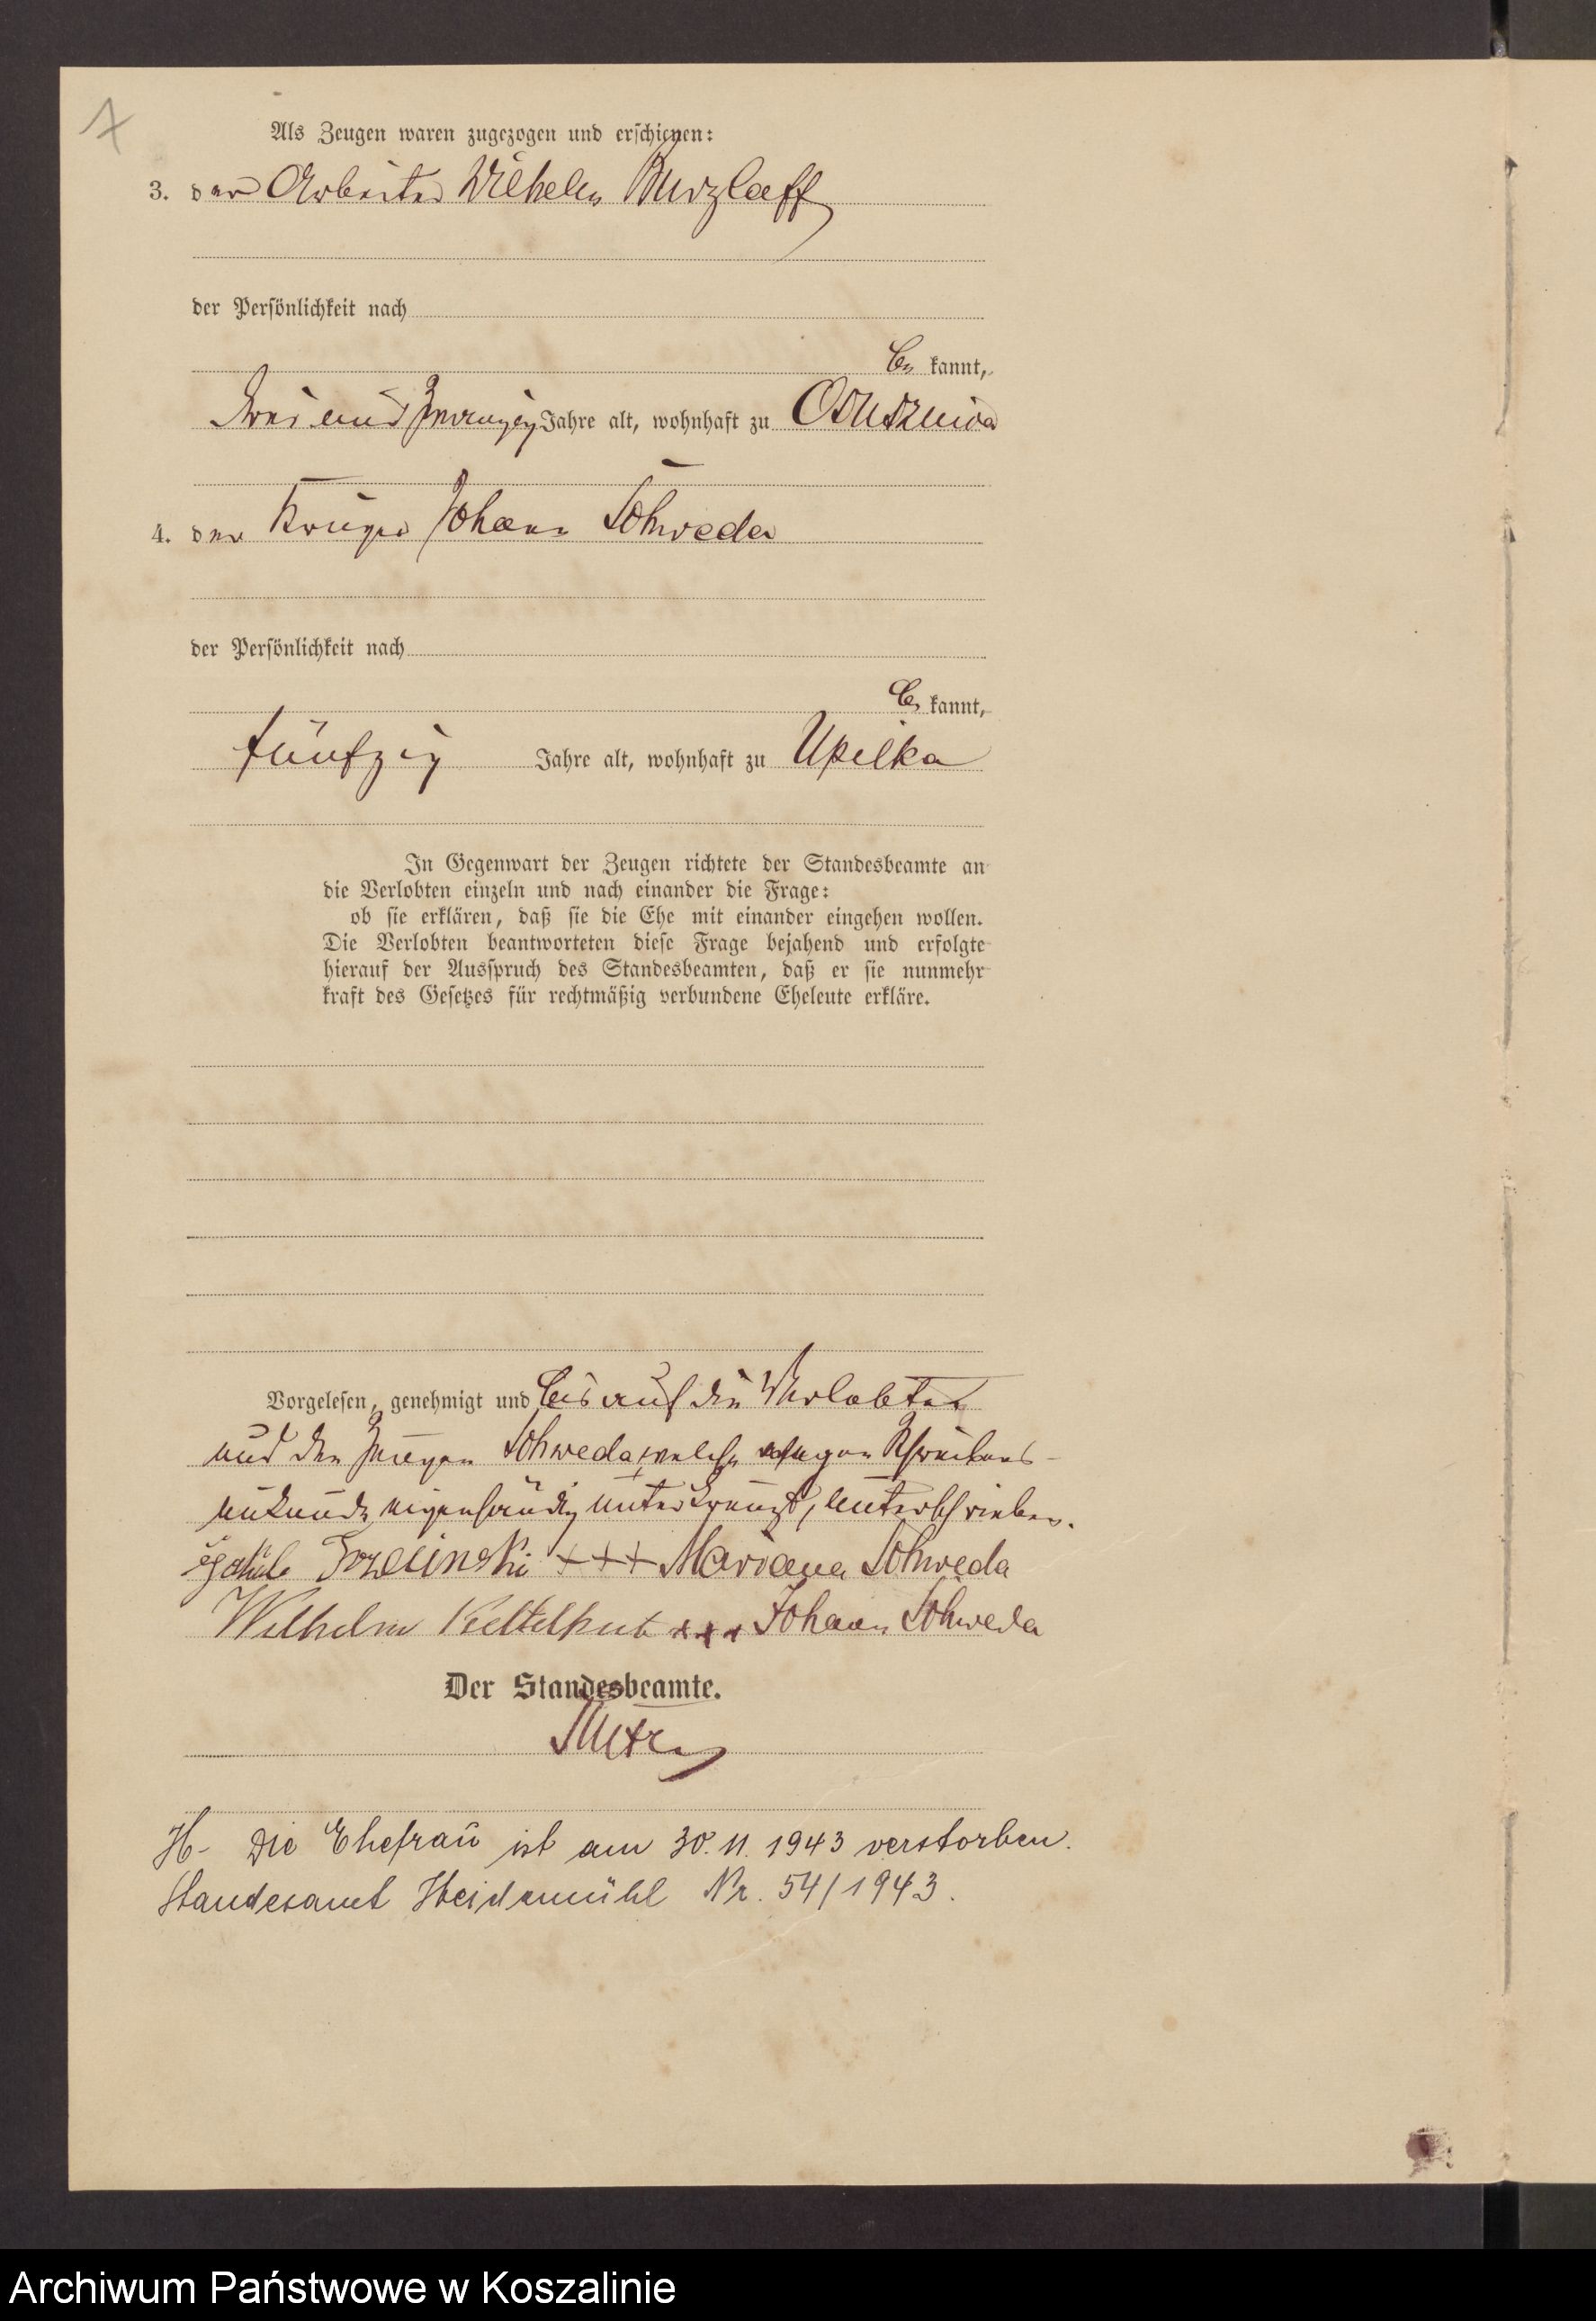 Als Zeugen waren zugezogen und erschienen:
3. der Arbeiter Wilhelm
der Persönlichkeit nach
be kannt,
zwanzig Jahre alt, wohnhaft zu
4. der Krüger Johann Schweda
der Persönlichkeit nach
be kannt,
fünfzig Jahre alt, wohnhaft zu Upilka
In Gegenwart der Zeugen richtete der Standesbeamte an
die Verlobten einzeln und nach einander die Frage:
ob sie erklären, daß sie die Ehe mit einander eingehen wollen.
Die Verlobten beantworteten diese Frage bejahend und erfolgte
hierauf der Ausspruch des Standesbeamten, daß er sie nunmehr
kraft des Gesetzes für rechtmäßig verbundene Eheleute erkläre.
Vorgelesen, genehmigt und bis auf die Verlobte
und den Zeugen Schweda, welche wegen Schreibens-
unkunde eigenhändig unterkreuzt, unterschrieben.
+++ Mariana Schweda
Wilhelm +++ Johann Schweda
Der Standesbeamte.
H- Die Ehefrau ist am 30. 11. 1943 verstorben.
Standesamt Heidemühl Nr. 54/1943.
Archiwum Państwowe w Koszalinie